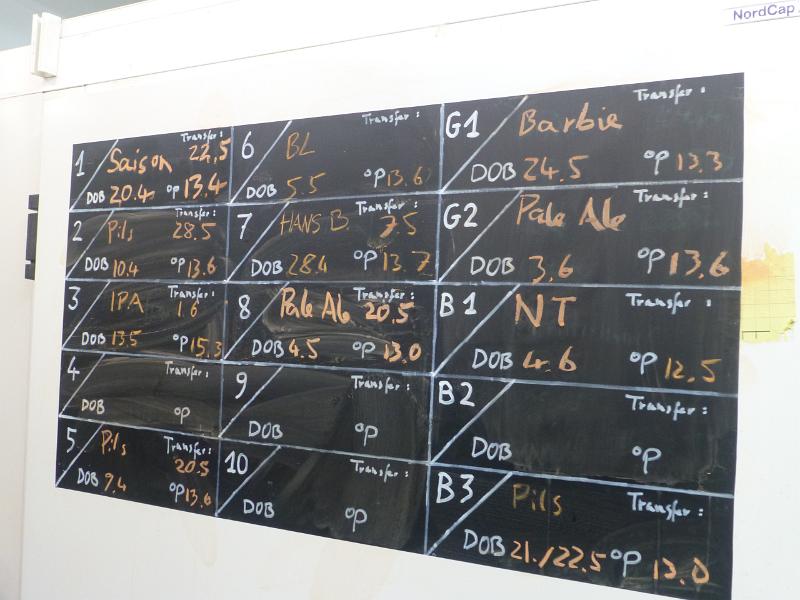 NordCap
1 Saison Transfer: 22,5
DOB 20.4 °P 13.4
2 Pils Transfer: 28.5
DOB 10.4 °P 13.6
3 IPA Transfer: 1.6
DOB 13.5 °P 15.3
4 Transfer:
DOB °P
5 Pils Transfer: 20.5
DOB 9.4 °P 13,6
6 BL Transfer:
DOB 5.5 °P 13.6
7 HANS B. Transfer: 7.5
DOB 28.4 °P 13.7
8 Pale Ale Transfer: 20.5
DOB 4.5 °P 13.0
9 Transfer:
DOB °P
10 Transfer:
DOB °P
G1 Barbie Transfer:
DOB 24.5 °P 13.3
G2 Pale Ale Transfer:
DOB 3.6 °P 13.6
B1 NT Transfer:
DOB 4.6 °P 12.5
B2 Transfer:
DOB °P
B3 Pils Transfer:
DOB 21./22.5 °P 13.0